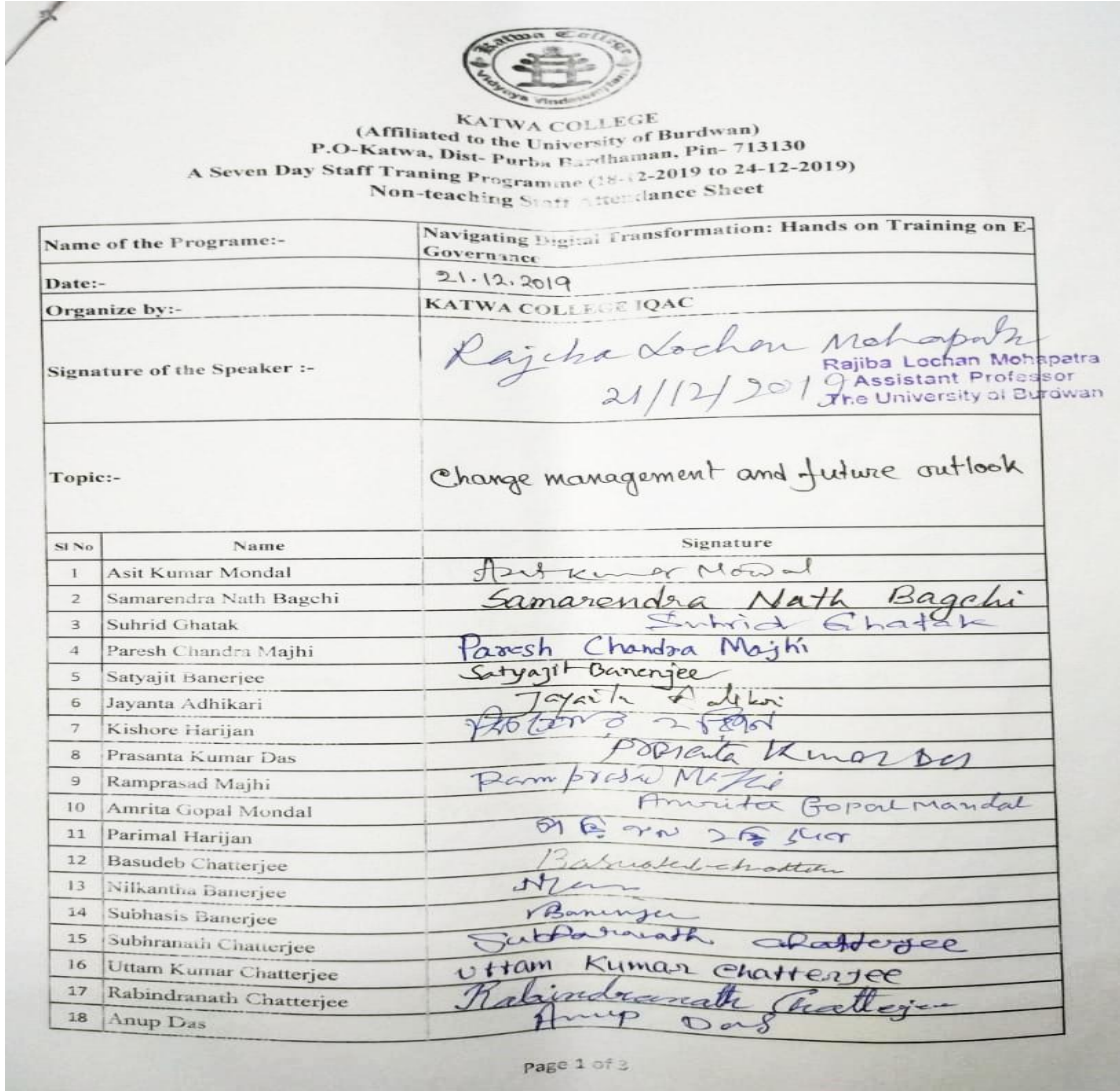 Katwa College
KATWA COLLEGE
(Affiliated to the University of Burdwan)
P.O-Katwa, Dist- Purba Bardhaman, Pin- 713130
A Seven Day Staff Traning Programme (18-12-2019 to 24-12-2019)
Non-teaching Staff Attendance Sheet
Name of the Programe:- Navigating Digital Transformation: Hands on Training on E-
Governance
Date:- 21.12.2019
Organize by:- KATWA COLLEGE IQAC
Signature of the Speaker :- Rajiba Lochan Mohapatra
Rajiba Lochan Mohapatra
21/12/2019 Assistant Professor
The University of Burdwan
Topic:- Change management and future outlook
Sl No Name Signature
1 Asit Kumar Mondal Asit Kumar Mondal
2 Samarendra Nath Bagchi Samarendra Nath Bagchi
3 Suhrid Ghatak Suhrid Ghatak
4 Paresh Chandra Majhi Paresh Chandra Majhi
5 Satyajit Banerjee Satyajit Banerjee
6 Jayanta Adhikari Jayanta Adhikari
7 Kishore Harijan
8 Prasanta Kumar Das Prasanta Kumar Das
9 Ramprasad Majhi Ramprasad Majhi
10 Amrita Gopal Mondal Amrita Gopal Mandal
11 Parimal Harijan
12 Basudeb Chatterjee Basudeb chatterjee
13 Nilkantha Banerjee
14 Subhasis Banerjee Banerjee
15 Subhranath Chatterjee Subhranath Chatterjee
16 Uttam Kumar Chatterjee Uttam Kumar Chatterjee
17 Rabindranath Chatterjee Rabindranath Chatterjee
18 Anup Das Anup Das
Page 1 of 3